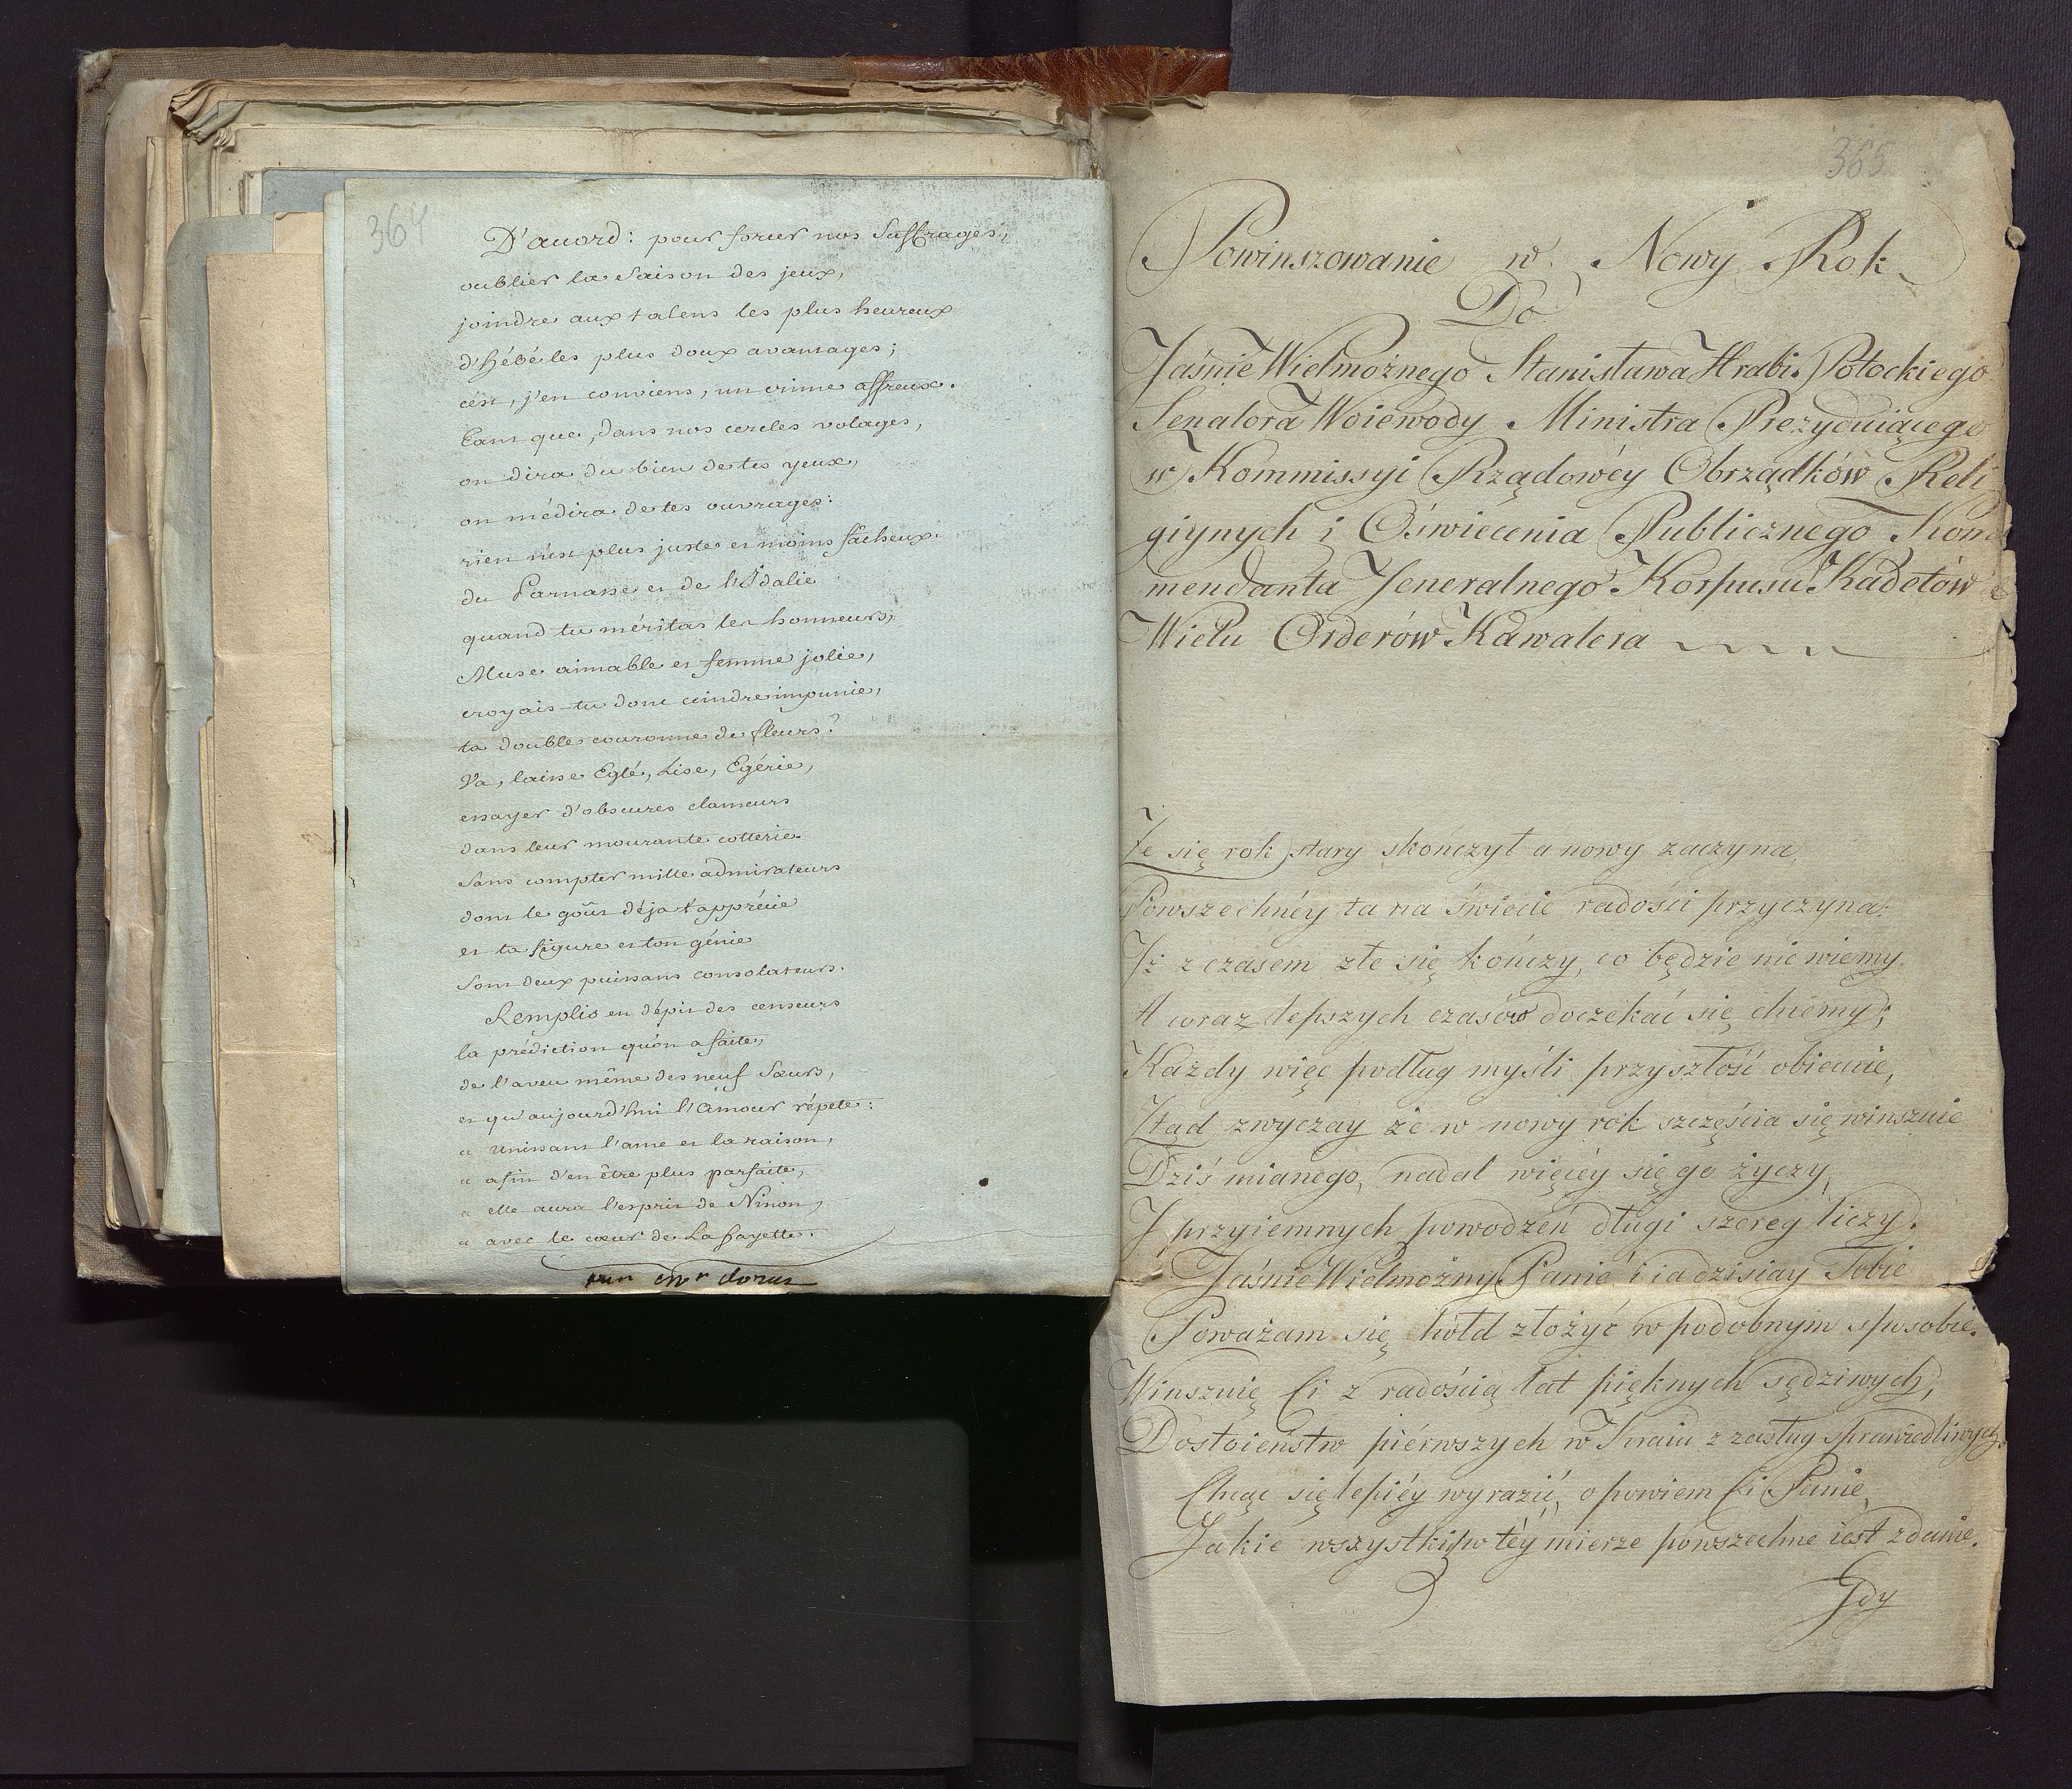 364
D'accord: pour forcer nos suffrages,
oublier la saison des jeux,
joindre aux talens les plus heureux
d'hébé les plus doux avantages;
c'est, j'en conviens, un crime affreux.
Tant que, dans nos cercles volages,
on dira du bien de tes yeux,
on médira de tes ouvrages:
rien n'est plus juste et moins fâcheux.
du Parnasse et de l'Idalie
quand tu méritas les honneurs,
Muse aimable et femme jolie,
croyais-tu donc ceindre impunie,
ta double couronne de fleurs?
Va, laisse Eglé, Lise, Egérie,
essayer d'obscures clameurs
dans leur mourante cotterie.
sans compter mille admirateurs
dont le goût déja t'apprécie
et ta figure et ton génie
sont deux puissans consolateurs.
Remplis en dépit des censeurs
la prédiction qu'on a faite,
de l'aveu même des neuf Sœurs,
et qu'aujourd'hui l'Amour répete:
« Unissant l'ame et la raison,
« afin d'en être plus parfaite,
« elle aura l'esprit de Ninon,
« avec le cœur de La fayette.
365
Powinszowanie w Nowy Rok
Do
Jaśnie Wielmożnego Stanisława Hrabi Potockiego
Senatora Woiewody Ministra Prezyduiącego
w Kommissyi Rządowéy Obrządków Reli
giynych i Oświecenia Publicznego Kom
mendanta Jeneralnego Korpusu Kadetów
Wielu Orderów Kawalera
Że się rok stary skonczył a nowy zaczyna,
Powszechnéy ta na świecie radości przyczyna:
Iż z czasem złe się kończy, co będzie nie wiemy
A coraz lepszych czasów doczekać się chcemy;
Każdy więc podług myśli przyszłość obiecuie,
Ztąd zwyczay że w nowy rok szczęścia się winszuie
Dziś mianego, nadal więcéy się go życzy,
I przyiemnych powodzeń długi szereg liczy.
Jaśnie Wielmożny Panie i ia dzisiay Tobie
Poważam się hołd złożyć w podobnym sposobie.
Winszuię Ci z radością lat pięknych sędziwych,
Dostoieństw piérwszych w Kraiu z zasług sprawiedliwych.
Chcąc się lepiéy wyrazić, opowiem Ci Panie,
Jakie wszystkich w téy mierze powszechne iest zdanie.
Gdy